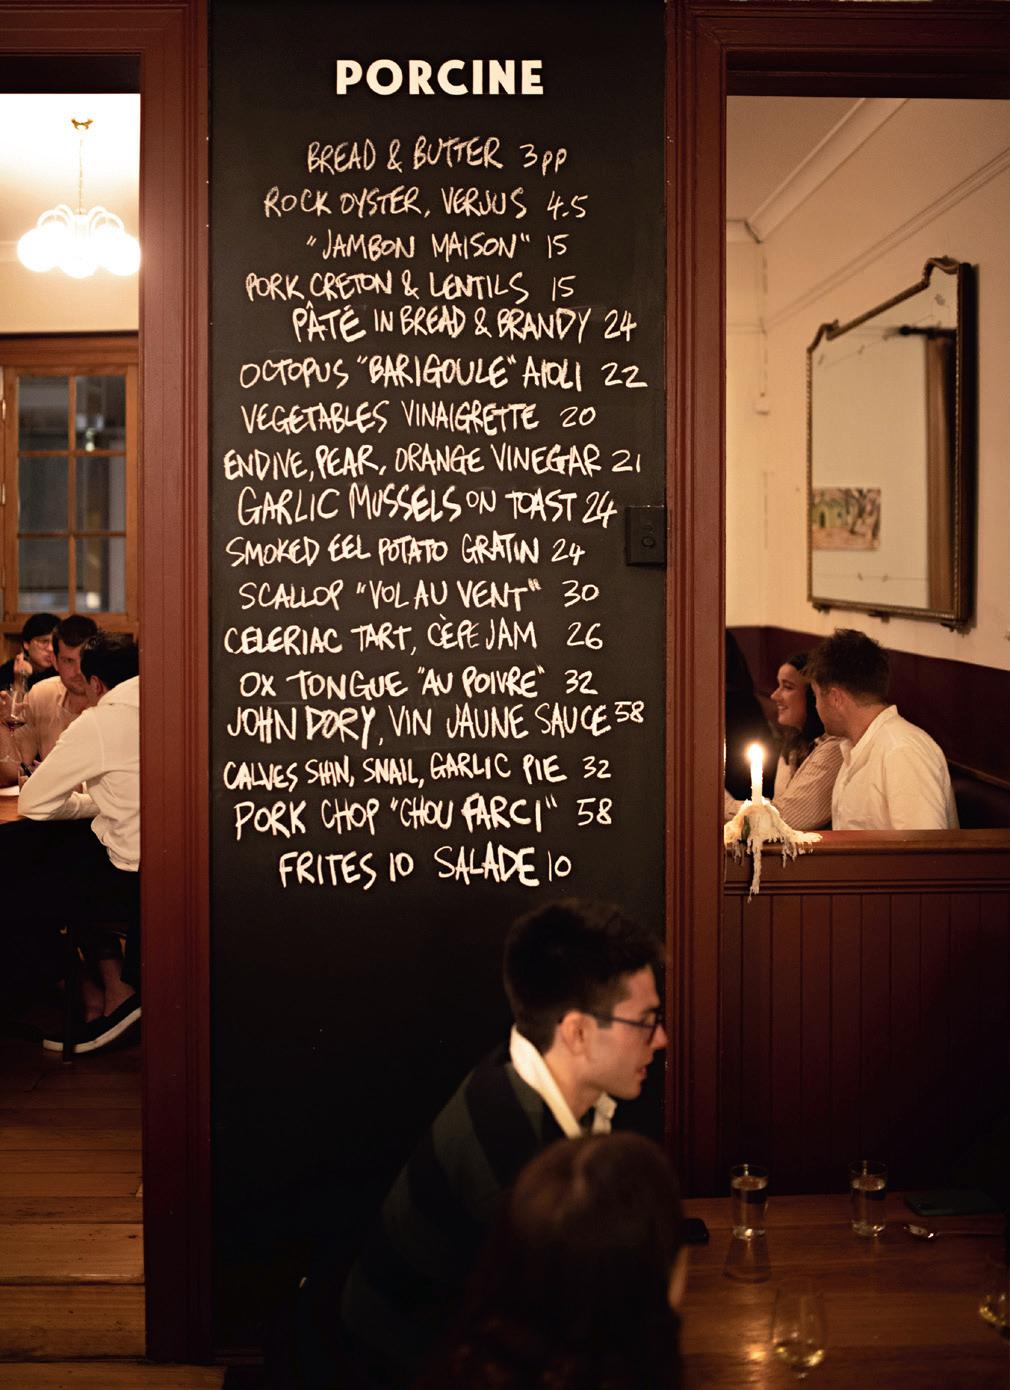 PORCINE
BREAD & BUTTER 3pp
ROCK OYSTER, VERJUS 4.5
"JAMBON MAISON" 15
PORK CRETON & LENTILS 15
PÂTÉ IN BREAD & BRANDY 24
OCTOPUS "BARIGOULE" AIOLI 22
VEGETABLES VINAIGRETTE 20
ENDIVE, PEAR, ORANGE VINEGAR 21
GARLIC MUSSELS ON TOAST 24
SMOKED EEL POTATO GRATIN 24
SCALLOP "VOL AU VENT" 30
CELERIAC TART, CÈPE JAM 26
OX TONGUE "AU POIVRE" 32
JOHN DORY, VIN JAUNE SAUCE 58
CALVES SHIN, SNAIL, GARLIC PIE 32
PORK CHOP "CHOU FARCI" 58
FRITES 10 SALADE 10